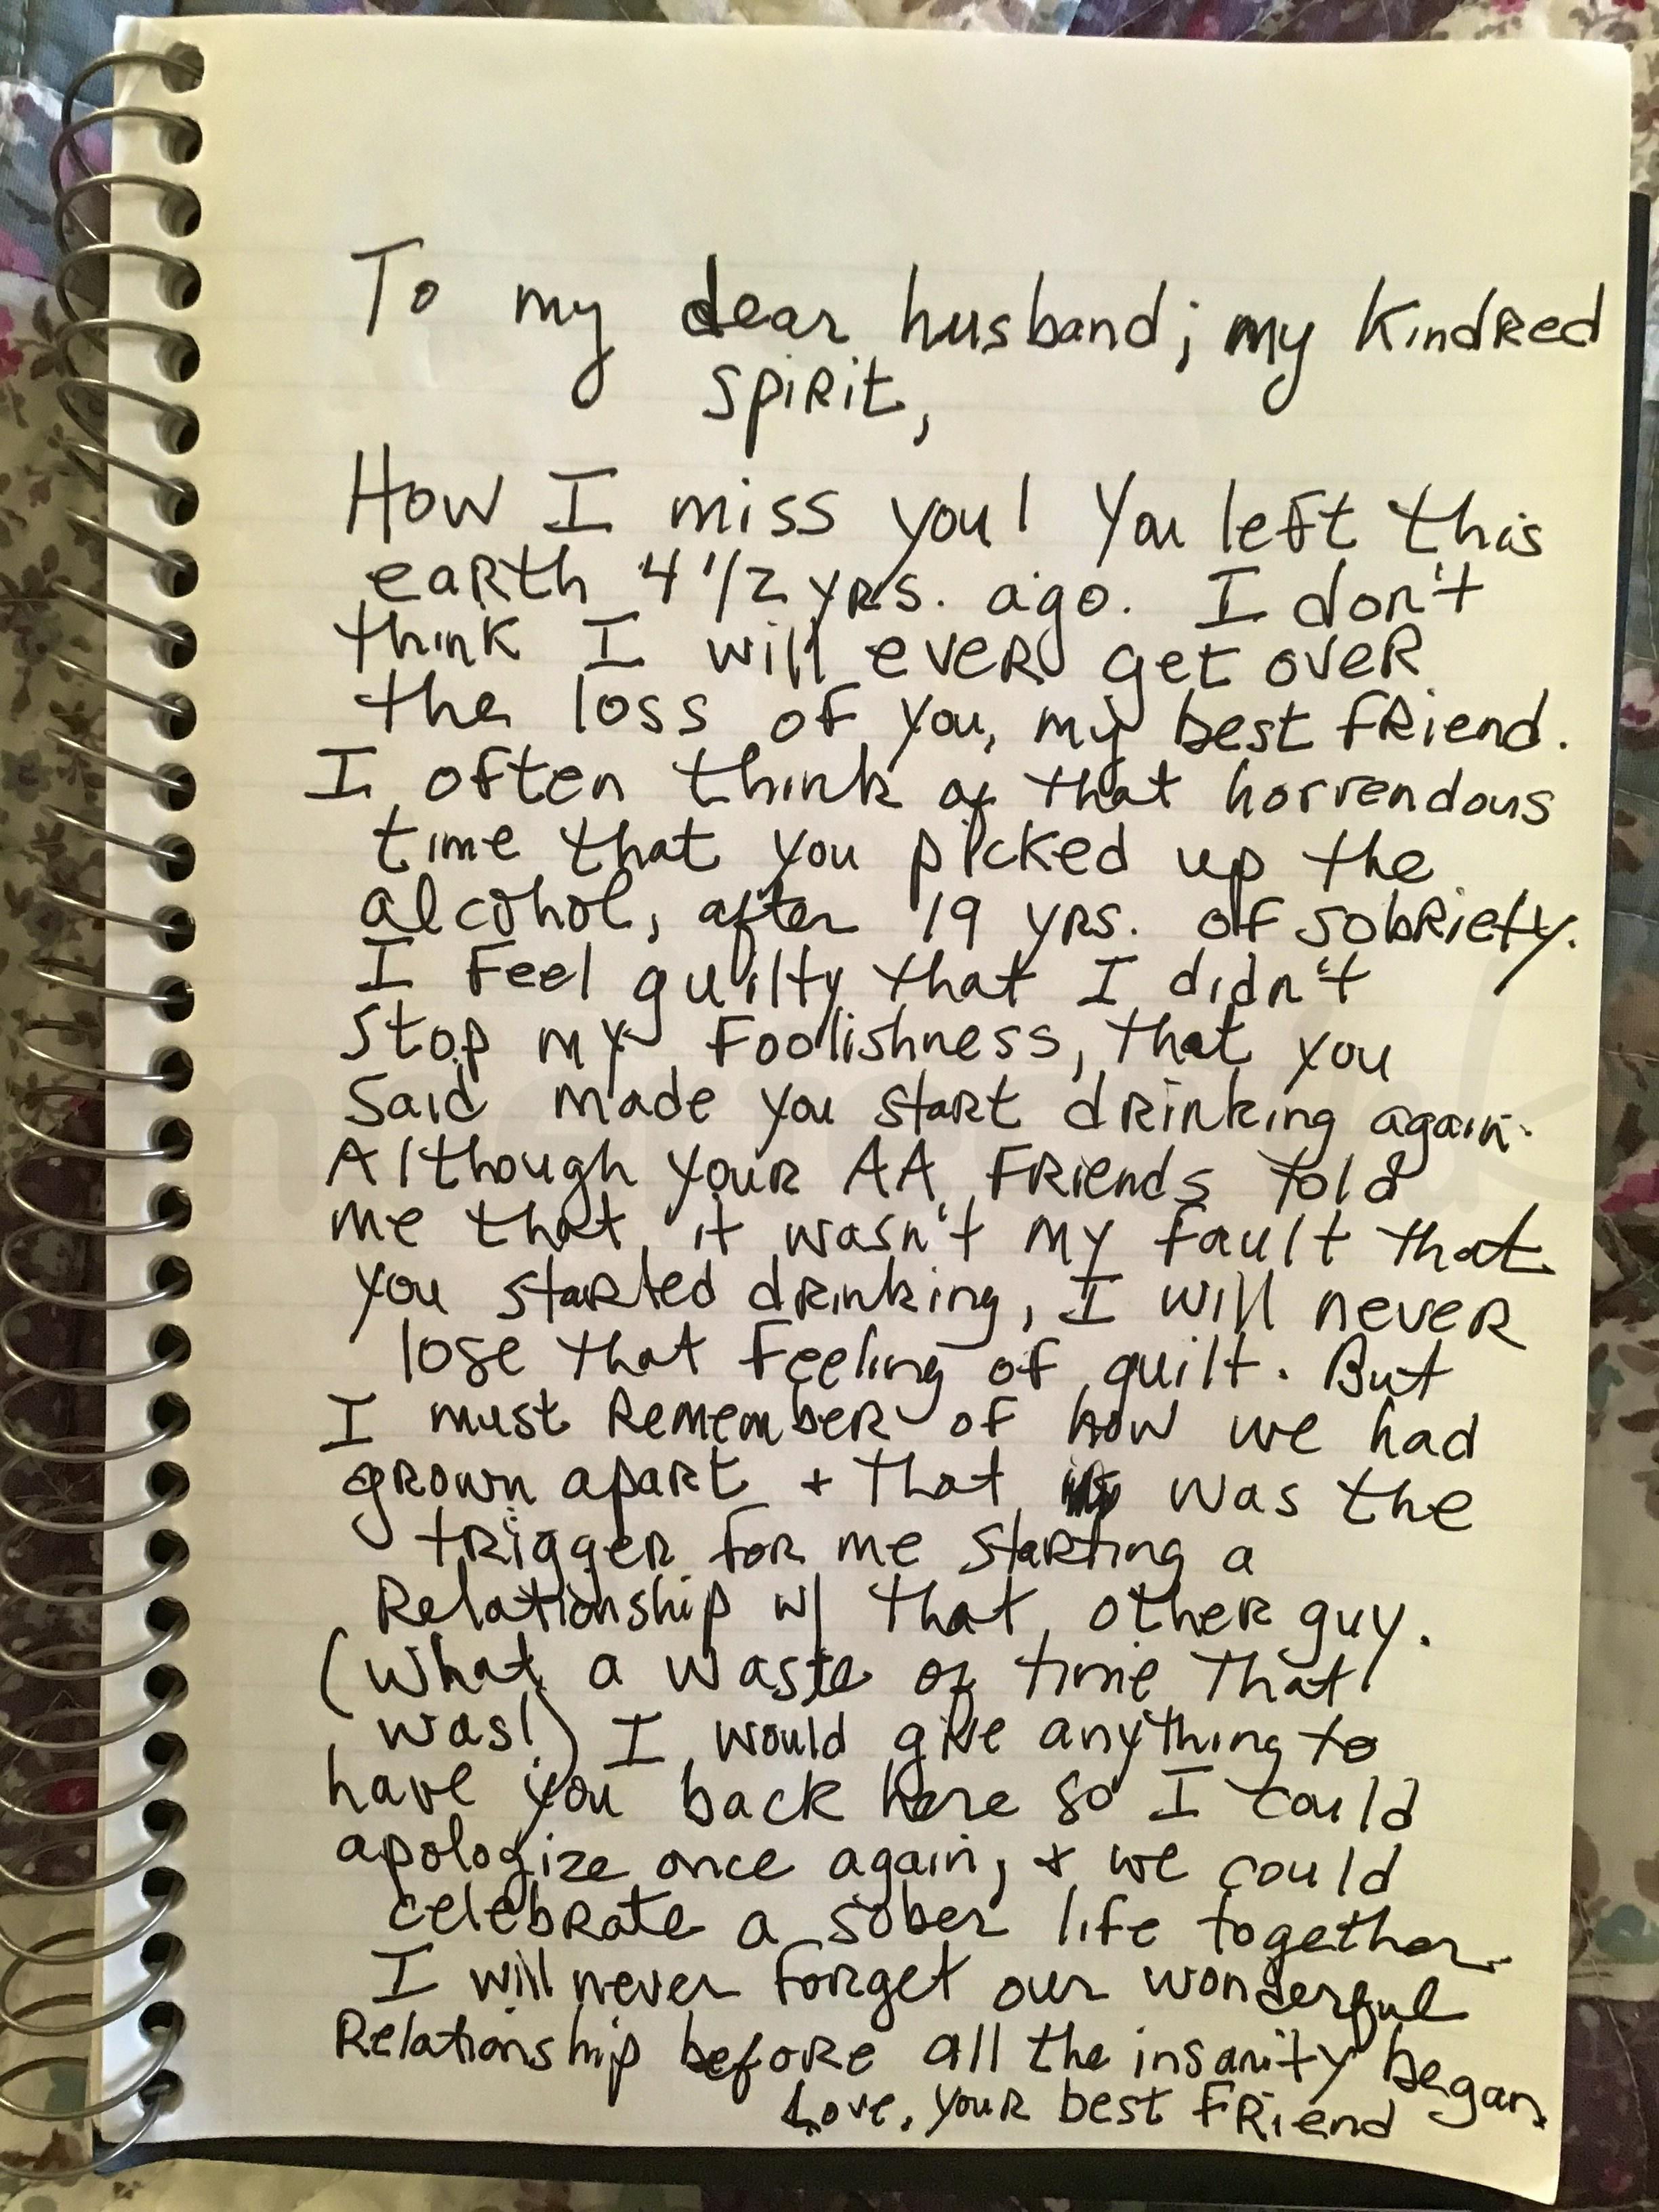 To my dear husband; my kindred
spirit,
How I miss you! You left this
earth 4 1/2 yrs. ago. I don't
think I will ever get over
the loss of you, my best friend.
I often think of that horrendous
time that you picked up the
alcohol, after 19 yrs. of sobriety.
I feel guilty that I didn't
stop my foolishness, that you
said made you start drinking again.
Although your AA friends told
me that it wasn't my fault that
you started drinking, I will never
lose that feeling of guilt. But
I must remember of how we had
grown apart + that was the
trigger for me starting a
relationship w/ that other guy.
(What a waste of time that
was!) I would give anything to
have you back here so I could
apologize once again, + we could
celebrate a sober life together.
I will never forget our wonderful
relationship before all the insanity began.
Love, your best friend